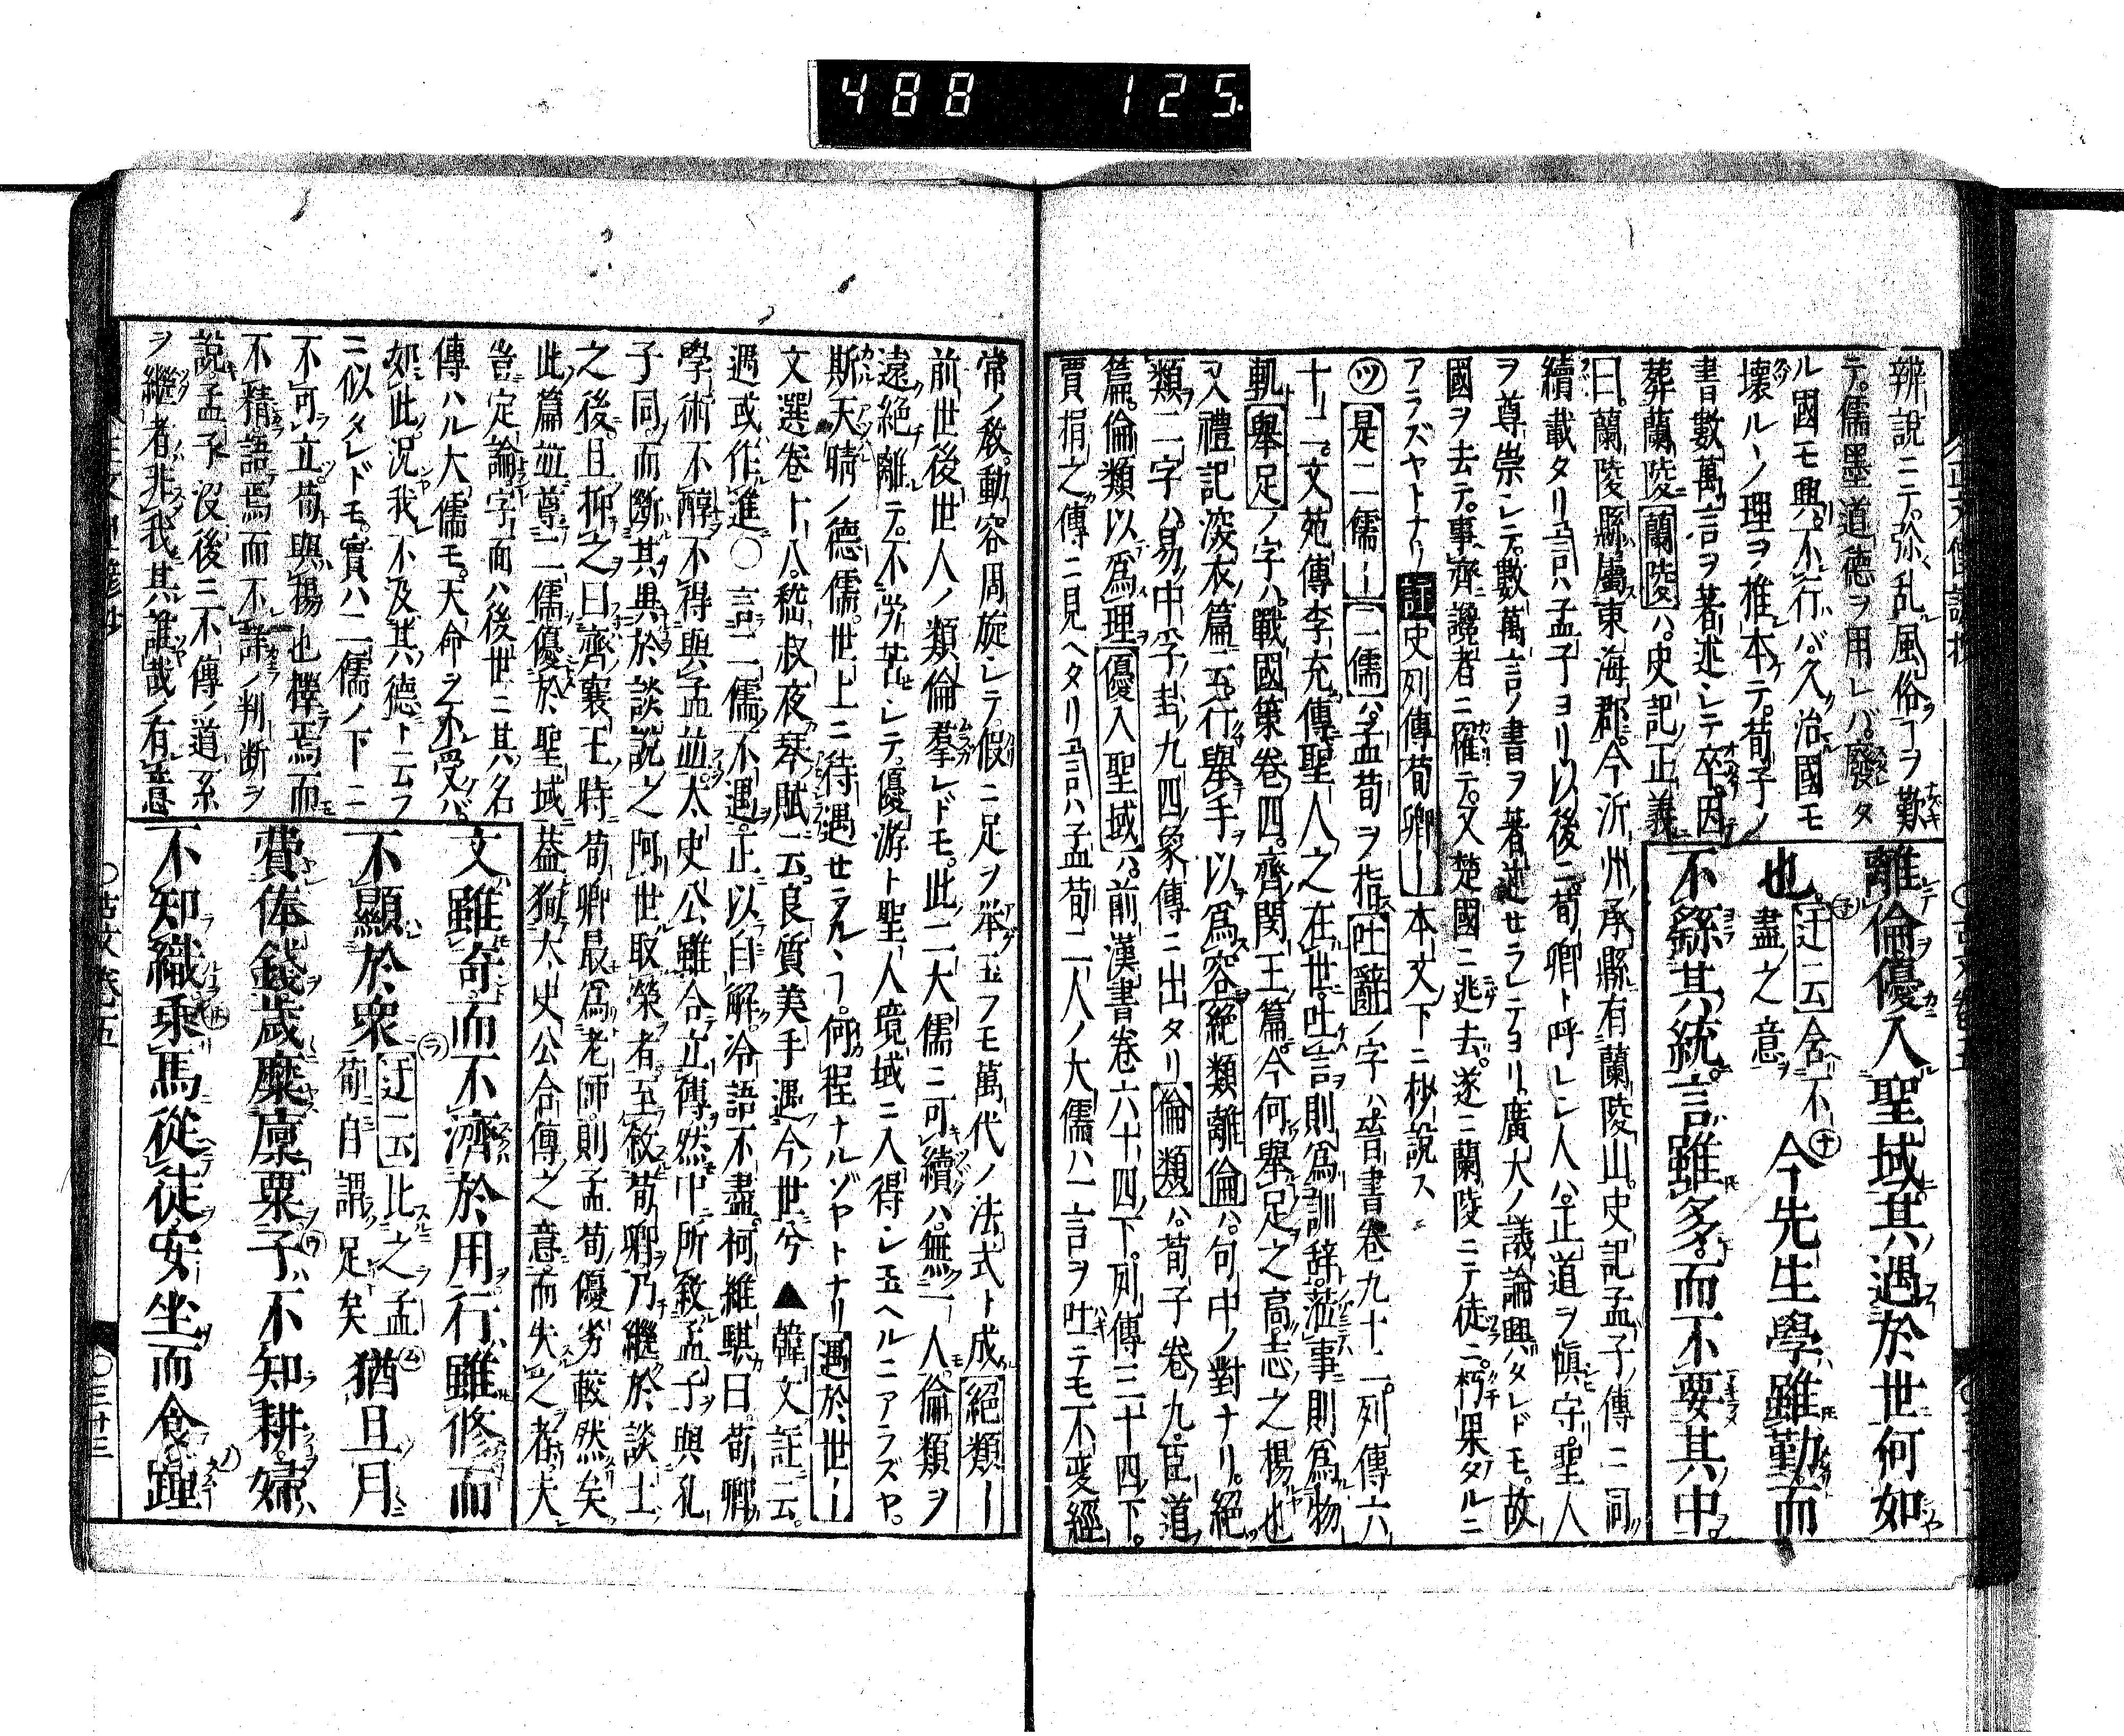 488 125
辨説ニテ。弥乱風俗ヿヲ歎
テ。儒墨道德ヲ用レバ。廢タ
ル國モ興。不行バ。久治國モ
壊ルヽノ理ヲ推本テ。荀子ノ
書數萬言ヲ著述シテ卒。因
葬蘭陵 蘭陵ハ。史記正義
離倫優入聖域其遇於世何如
也。迂云舍不盡之意 今先生學雖勤而
不繇其統言雖多而不要其中
曰。蘭陵縣屬東海郡。今沂州承縣有蘭陵山。史記孟子傳ニ詞
續載タリ言ハ孟子ヨリ以後ニ。荀卿ト呼レシ人ハ。正道ヲ愼守。聖人
ヲ尊崇シテ。數萬言ノ書ヲ著述セラレテヨリ。廣大ノ議論興ダレドモ。故
國ヲ去テ。事齊讒者ニ罹テ。又楚國ニ逃去。遂ニ蘭陵ニテ徒ニ。朽果タルニ
アラズヤトナリ 註 史列傳荀卿― 本文下ニ杪説ス
ツ 是二儒― 二儒ハ。孟荀ヲ指 吐辭ノ字ハ晉書卷九十二。列傳六
十二。文苑傳李充傳聖人之在世。吐言則爲訓辞。莅事則爲物
軌 舉足ノ字ハ。戰國策卷四。齊閔王篇。今何舉足之高志之揚也
又禮記深衣篇ニ云行舉手以爲容 絕類離倫ハ。句中ノ對ナリ。絕
類ニ字ハ。易中孚卦九四象傳ニ出タリ 倫類ハ。荀子卷九。臣道
篇。倫類以爲理 優入聖域ハ。前漢書卷六十四下。列傳三十四下。
賈捐之傳ニ見ヘタリ言ハ孟荀二人ノ大儒ハ一言ヲ吐ニモ不変經
常ノ敎。動容周旋シテ。假ニ足ヲ举玉フモ萬代ノ法式ト成 絕類―
前世後世人ノ類倫羣レドモ。此二大儒ニ可續ハ。無一人。倫類ヲ
遠絕離テ。不労苦シテ。優游ト聖人境域ニ入得シ玉ヘルニアラズヤ。
斯天晴ノ德儒。世上ニ待遇セラルヽヿ。何程ナルゾヤトナリ 遇於世―
文選卷十八。嵇叔夜琴賦云。良質美手遇今世兮▲韓文註云。
遇或作進○言二儒不遇。正以自解。冷語不盡。柯維騏曰。荀卿
學術不醇不得與孟並。太史公雖合立傳。然中所敘孟子與孔
子同而斷其與於談說之阿世取榮者。至敘荀卿乃繼於談士
之後。且抑之曰。齊襄王時荀卿最爲老師。則孟荀優劣較然矣
此篇並尊二儒優於聖域。葢狥太史公合傳之意而失之者。夫
豈定論字面ハ後世ニ其名
傳ハル大儒モ。天命之不受バ
如此況我不及其德トニ云フ
ニ似タレドモ。實ハ二儒ノ下ニ
不可立。荀與揚也擇焉而
不精語焉而不詳ノ判断ヲ
説孟子沒後ニ不傳ノ道系
ヲ繼者非我其誰哉ノ有意
文雖奇而不濟於用行雖修而
不顯於衆 迂云比之孟荀自謂足矣 猶且月
費俸錢歲糜廩粟子不知耕婦
不知織乘馬從徒安坐而食踵
○三十三